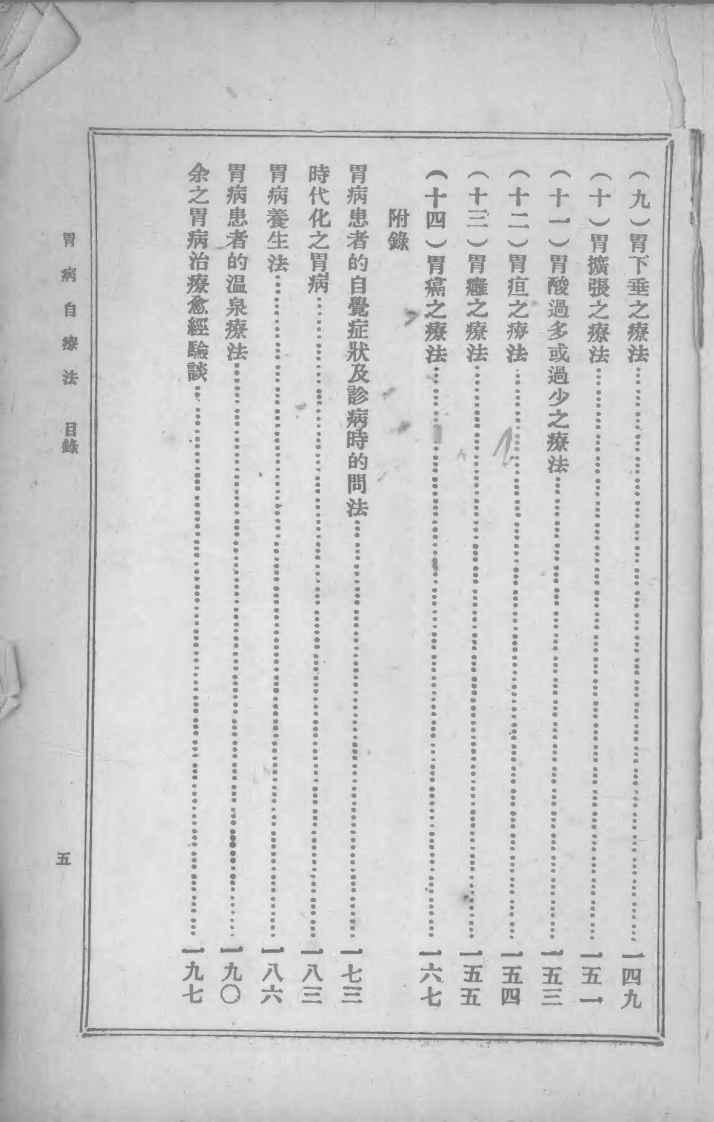 （九）胃下垂之療法……一四九
（十）胃擴張之療法……一五一
（十一）胃酸過多或過少之療法……一五三
（十二）胃疸之療法……一五四
（十三）胃癰之療法……一五五
（十四）胃癌之療法……一六七
附錄
胃病患者的自覺症狀及診病時的問法……一七三
時代化之胃病……一八三
胃病養生法……一八六
胃病患者的溫泉療法……一九〇
余之胃病治療愈經驗談……一九七
胃病自療法 目錄
五